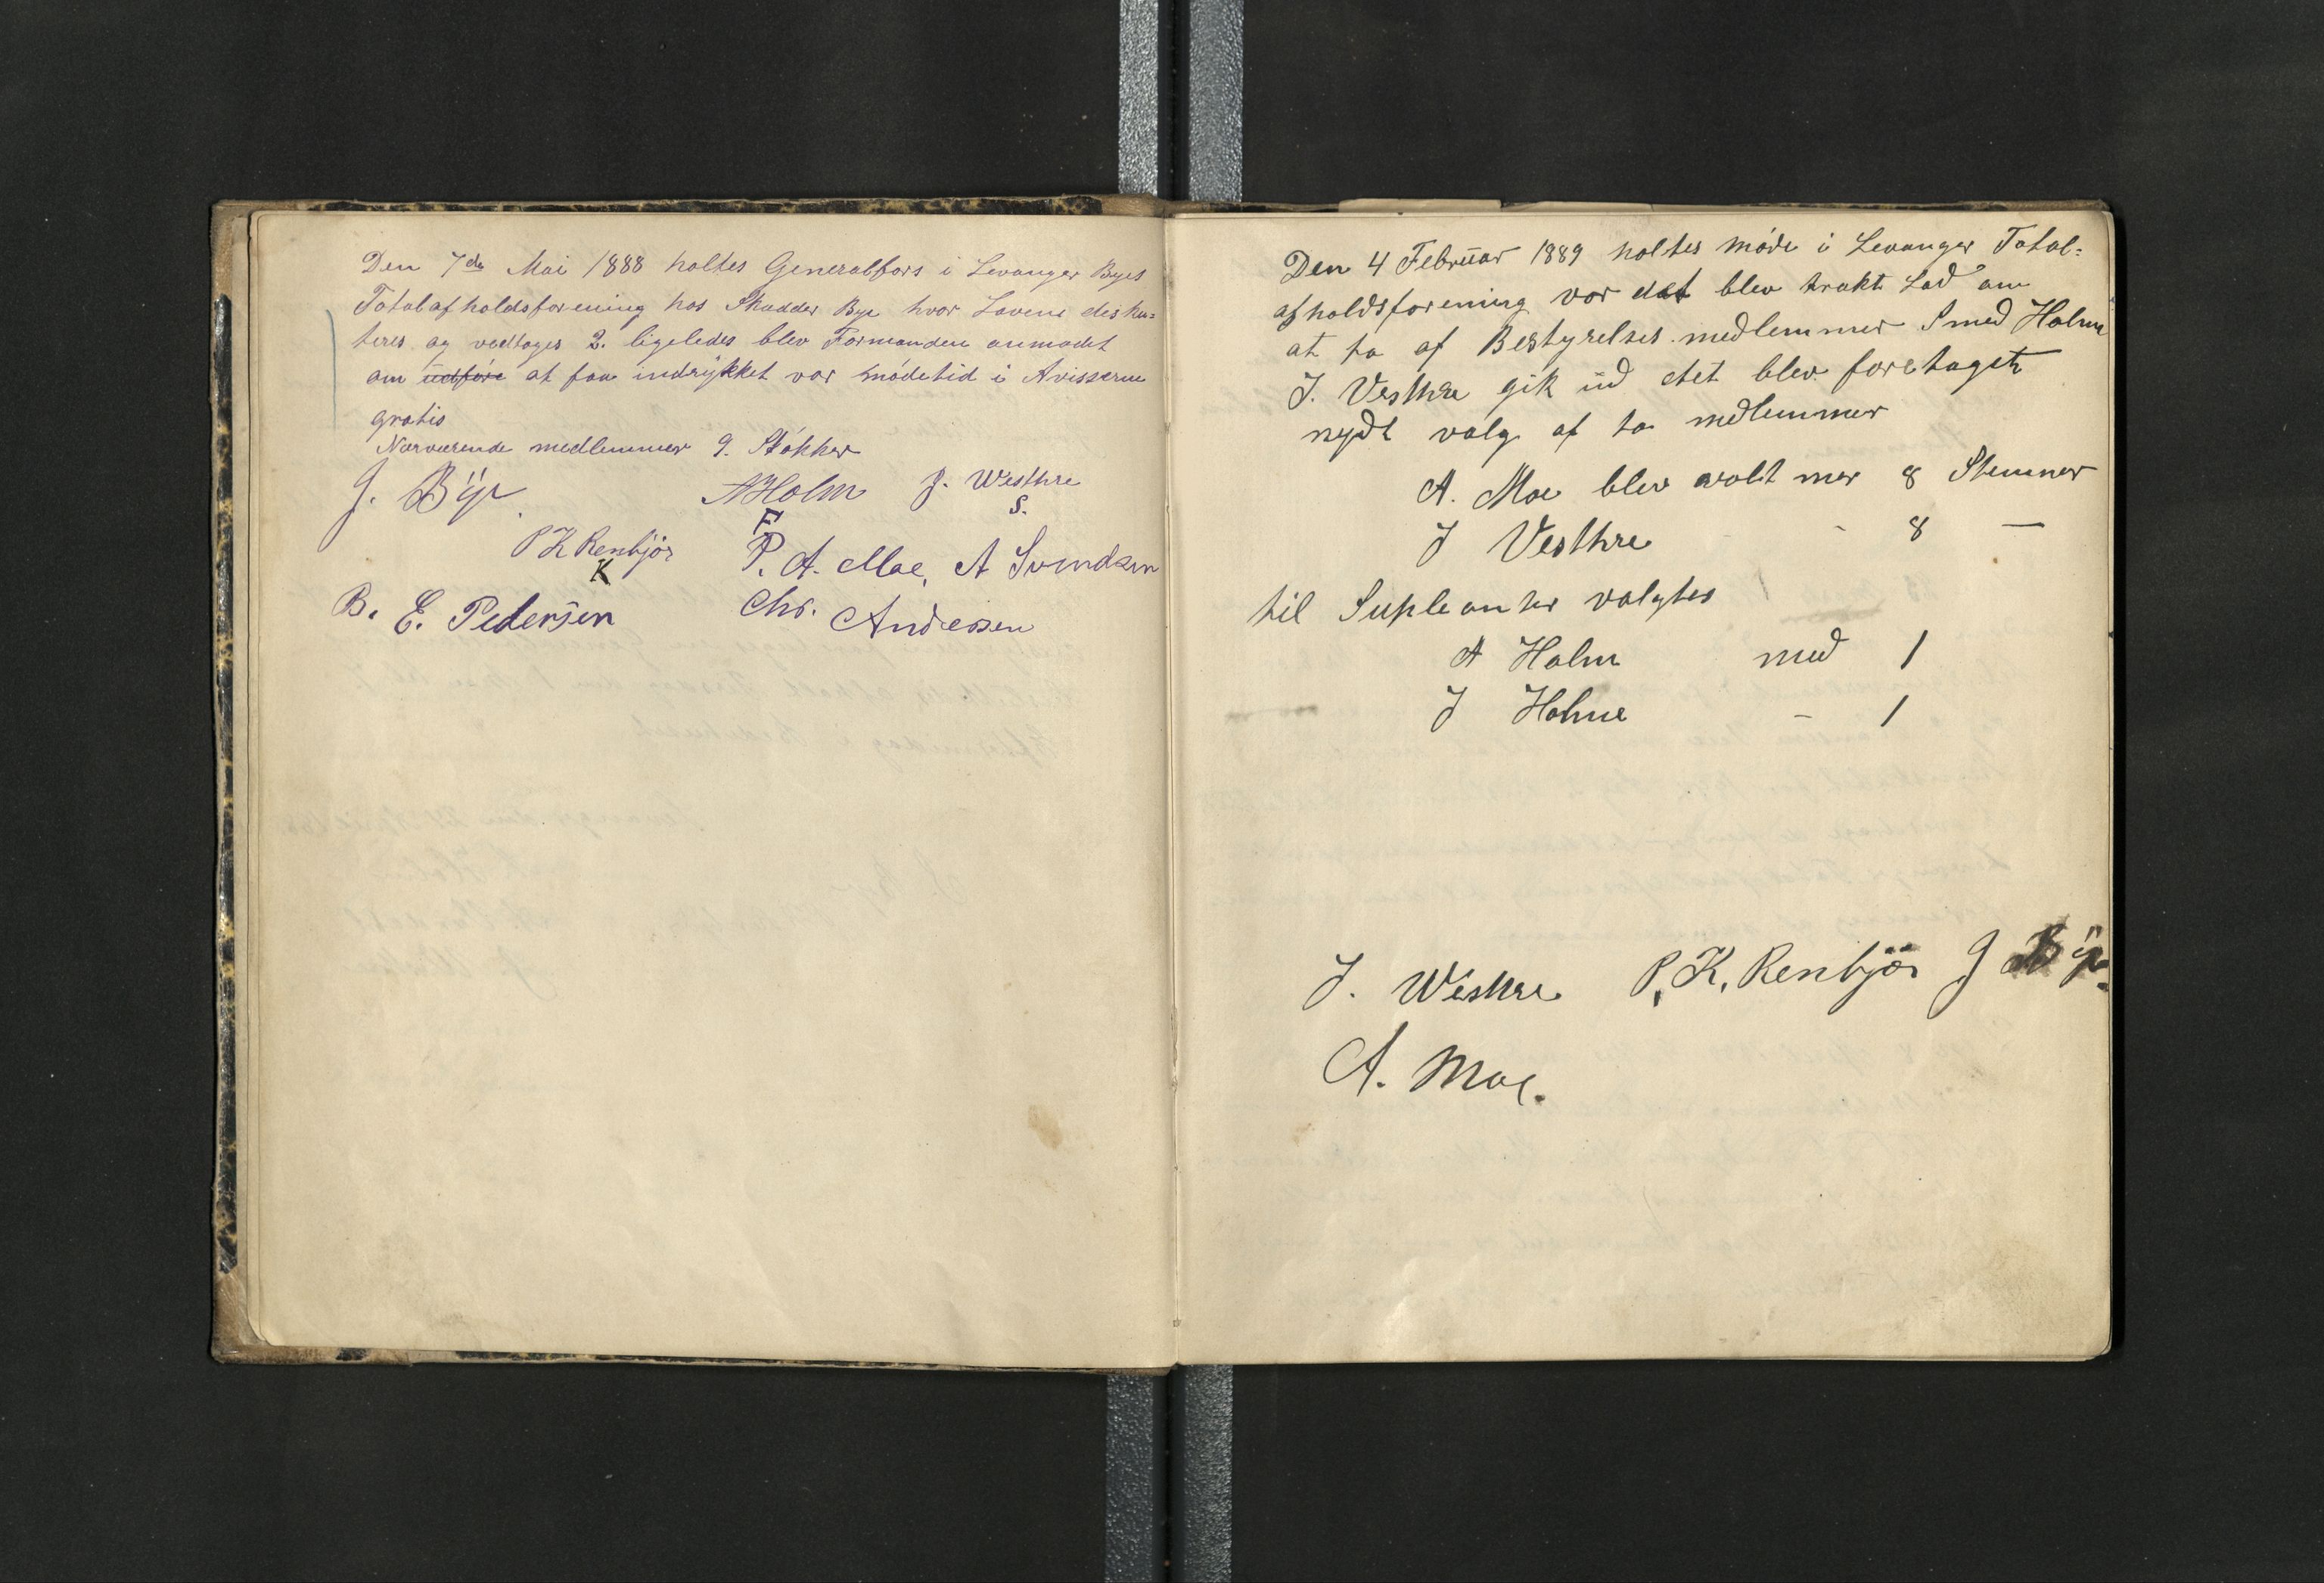 Den 7de Mai 1888 holtes Generalfors i Levanger Byes
Totalafholdsforening hos Skrædder Bye hvor Lovene disku=
teres og vedtoges 2. ligeledes blev Formanden anmodet
om udføre at faa indrykket vor mødetid i Aviserne
gratis
Nærværende medlemmer 9. Støkker
J. Bÿe AHolm J. Westhre
F S.
P K Renbjør P. A. Moe, A Svendsen
K
B. E. Pedersen Chr. Andersen
Den 4 Februar 1889 holtes møde i Levanger Total=
afholdsforening vor det blev trakt Lod om
at to af Bestyrelses medlemmer Smed Holm
J. Vesthre gik ud det blev foretaget
nydt valg af to medlemmer
A. Moe blev valt mer 8 Stemmer
J Vesthre - 8 —
til Supleanter valgtes
A Holm med 1
J Holme - 1
J. Westhre P. K. Renbjør J Bÿe.
A. Moe.